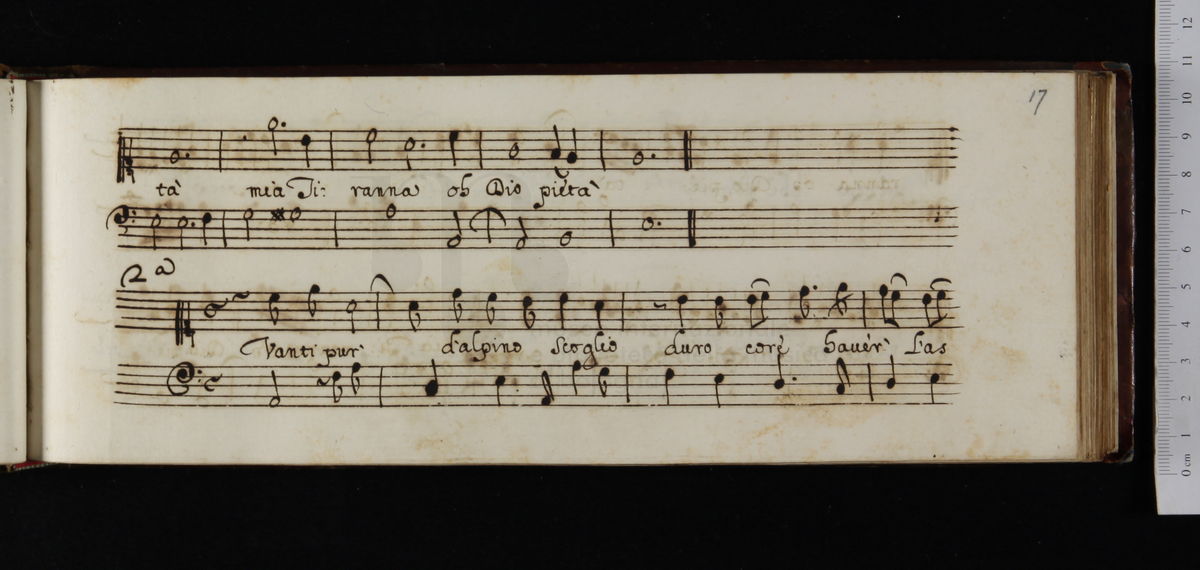 17
tà mia Ti: ranna oh Dio pietà
2a
Vanti pur d'alpino scoglio duro core haver L'as
12
11
10
9
8
7
6
5
4
3
2
1
0 cm